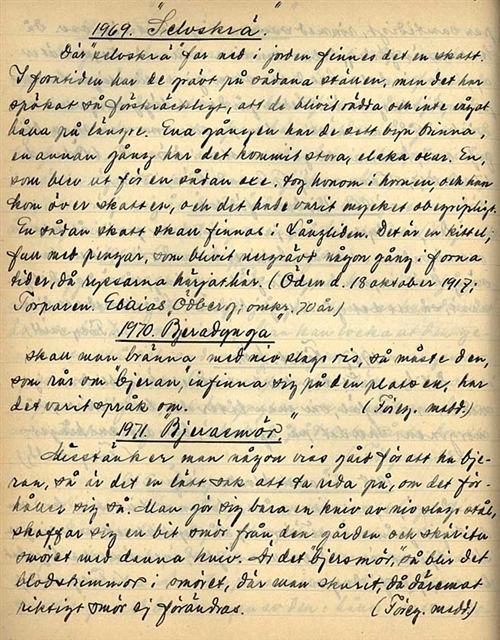 1969. "Selvskrå".
Där "selvskrå" far ned i jorden finnes det en skatt.
I forntiden har de grävt på sådana ställen, men det har
spökat så förskräckligt, att de blivit rädda och inte vågat
hålla på längre. Ena gången har de sett byn brinna,
en annan gång har det kommit stora, elaka oxar. En,
som blev ut för en sådan oxe, tog honom i hornen, och han
kom över skatten, och det hade varit mycket obegripligt.
En sådan skatt skall finnas i Långliden. Det är en kittel,
full med pengar, som blivit nergrävd någon gång i forna
tider, då ryssarna härjat här. (Öden d. 18 oktober 1917,
Torparen Esaias Ödberg, omkr. 70 år)
1970. "Bjeradynga"
skall man bränna med nio slags ris, så måste den,
som rår om "bjeran", infinna sig på den platsen, har
det varit språk om. (Föreg. medd.)
1971. "Bjerasmör."
Misstänker man någon viss gård för att ha bje-
ran, så är det en lätt sak att ta reda på, om det för-
håller sig så. Man gör sig bara en kniv av nio slags stål,
skaffar sig en bit smör från den gården och skär itu
smöret med denna kniv. Är det "bjersmör," så blir det
blodstrimmor i smöret, där man skurit, då däremot
riktigt smör ej förändras. (Föreg. medd.)